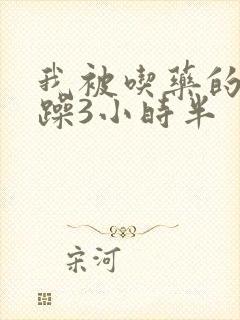 我被喫藥的
躁3小時半
宋河